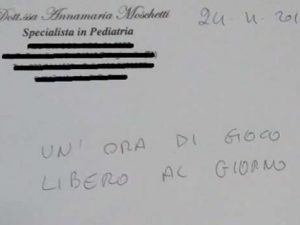 Dott.ssa Annamaria Moschetti
Specialista in Pediatria
UN' ORA DI GIOCO
LIBERO AL GIORNO